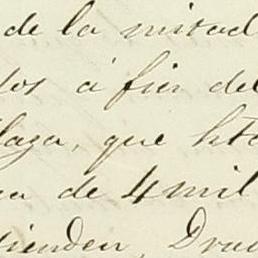 de la mitad
dos á fin del
laza, que
na de 4 mil
tienden,